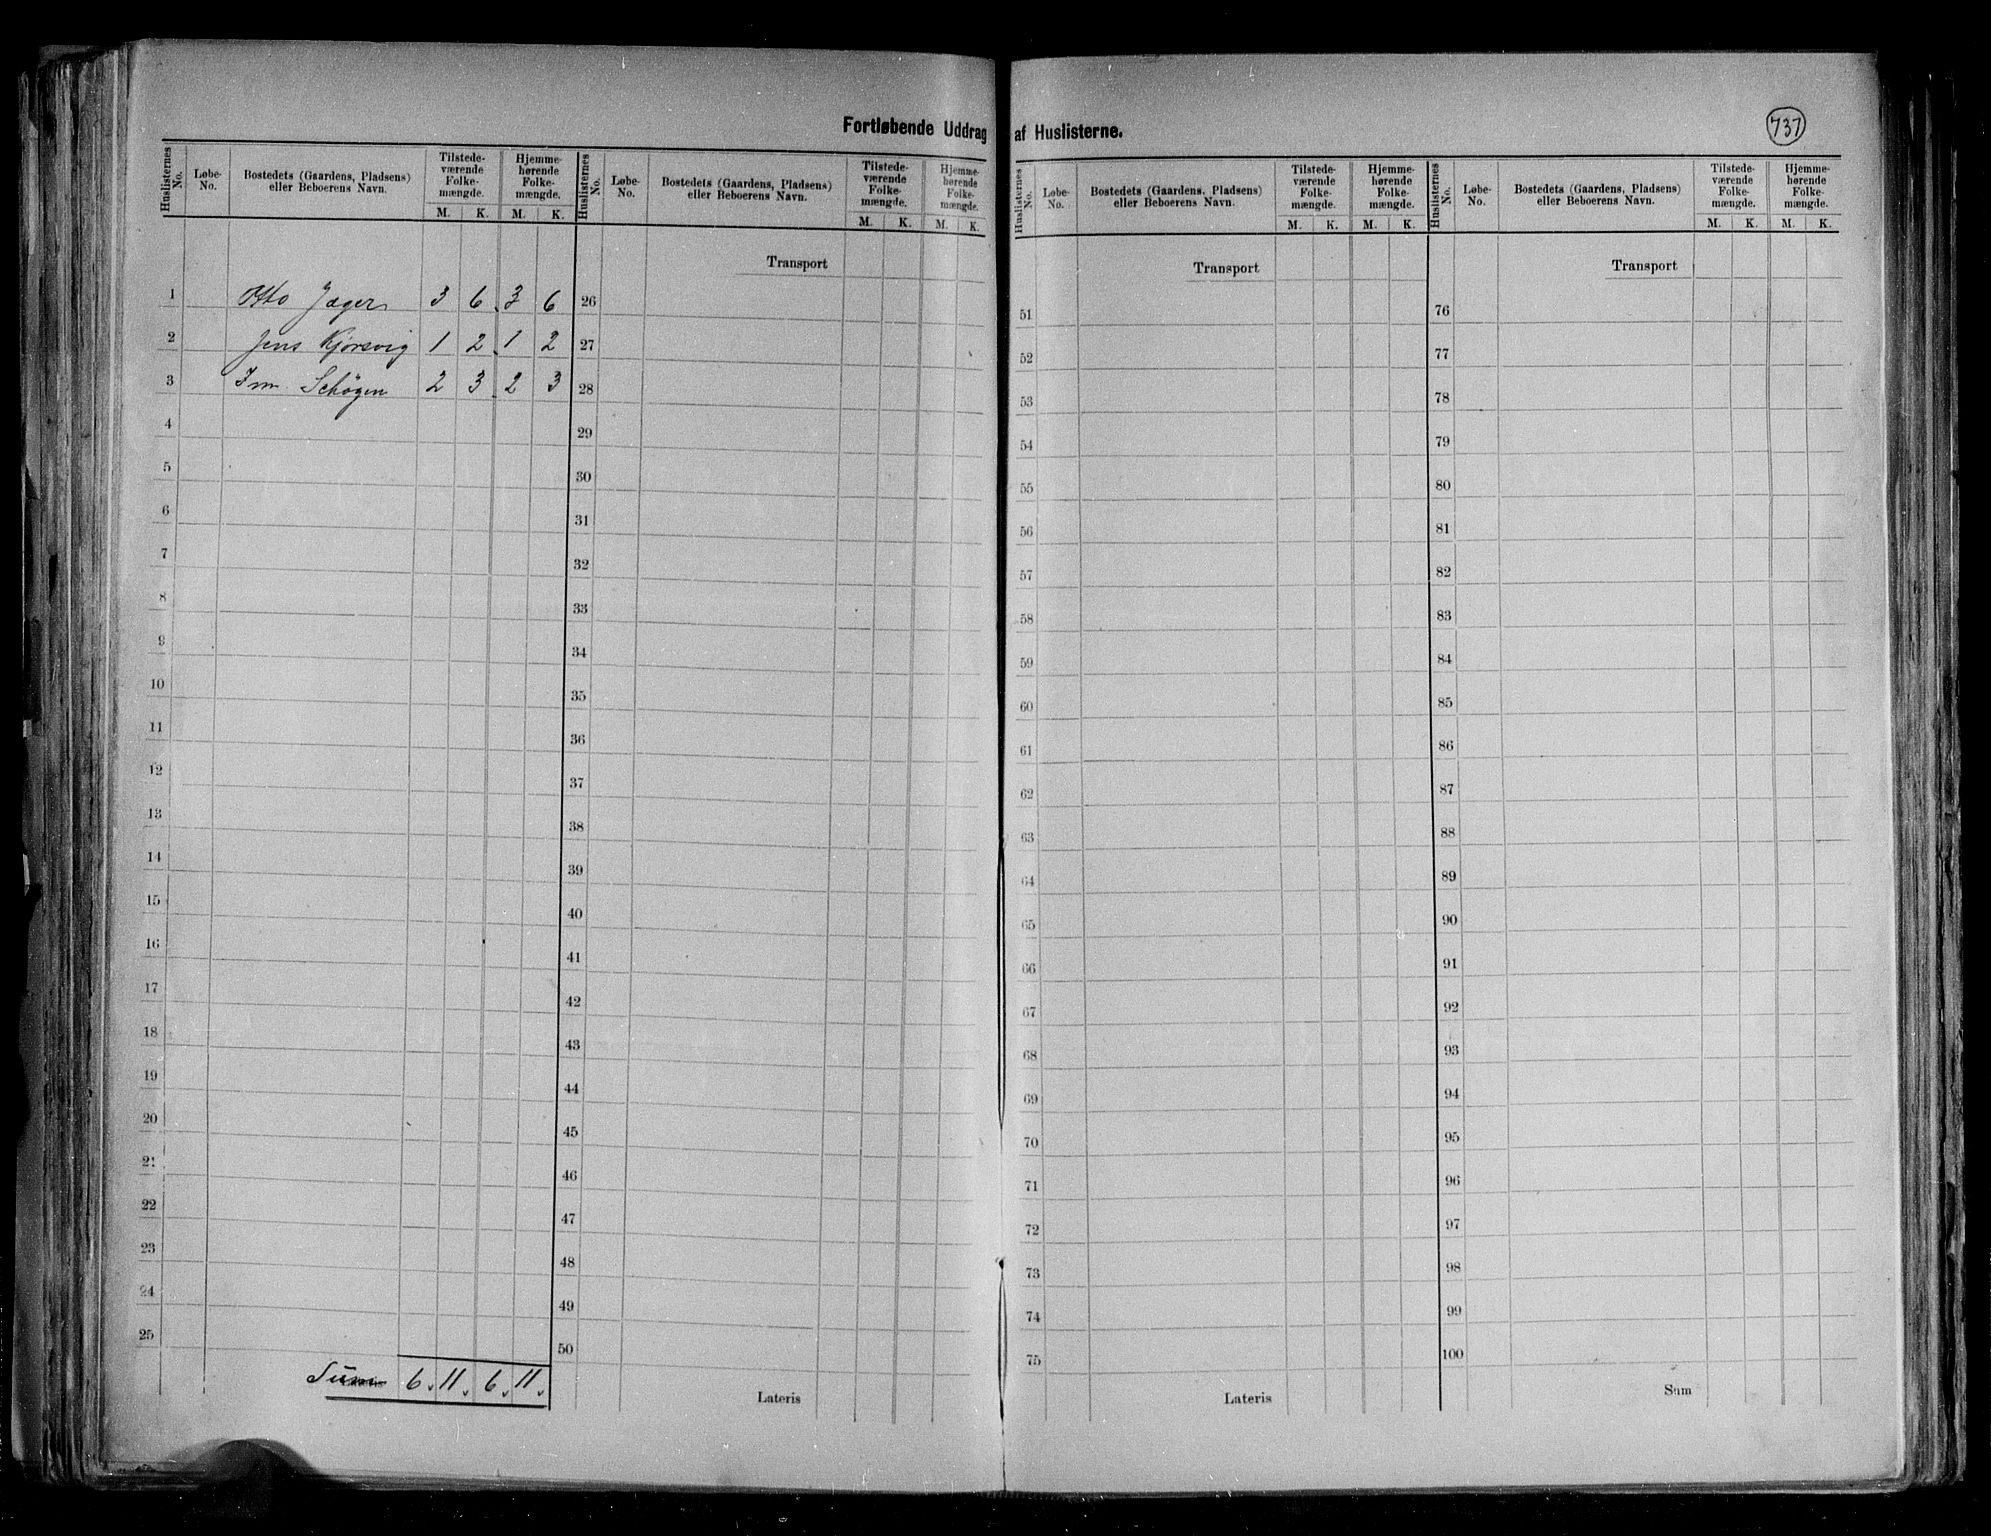 Fortløbende Uddrag af Huslisterne.
737
Huslisternes No. Løbe-No. Bostedets (Gaardens, Pladsens) eller Beboerens Navn. Tilstede-værende Folke-mængde. M. K. Hjemme-hørende Folke-mængde. M. K.
1 Otto Jæger 3 6 3 6
2 Jens Kjorsvig 1 2 1 2
3 Schøgen 2 3 2 3
4
5
6
7
8
9
10
11
12
13
14
15
16
17
18
19
20
21
22
23
24
25
Sum 6. 11. 6. 11.
Huslisternes No. Løbe-No. Bostedets (Gaardens, Pladsens) eller Beboerens Navn. Tilstede-værende Folke-mængde. M. K. Hjemme-hørende Folke-mængde. M. K.
Transport
26
27
28
29
30
31
32
33
34
35
36
37
38
39
40
41
42
43
44
45
46
47
48
49
50
Lateris
Huslisternes No. Løbe-No. Bostedets (Gaardens, Pladsens) eller Beboerens Navn. Tilstede-værende Folke-mængde. M. K. Hjemme-hørende Folke-mængde. M. K.
Transport
51
52
53
54
55
56
57
58
59
60
61
62
63
64
65
66
67
68
69
70
71
72
73
74
75
Lateris
Huslisternes No. Løbe-No. Bostedets (Gaardens, Pladsens) eller Beboerens Navn. Tilstede-værende Folke-mængde. M. K. Hjemme-hørende Folke-mængde. M. K.
Transport
76
77
78
79
80
81
82
83
84
85
86
87
88
89
90
91
92
93
94
95
96
97
98
99
100
Sum